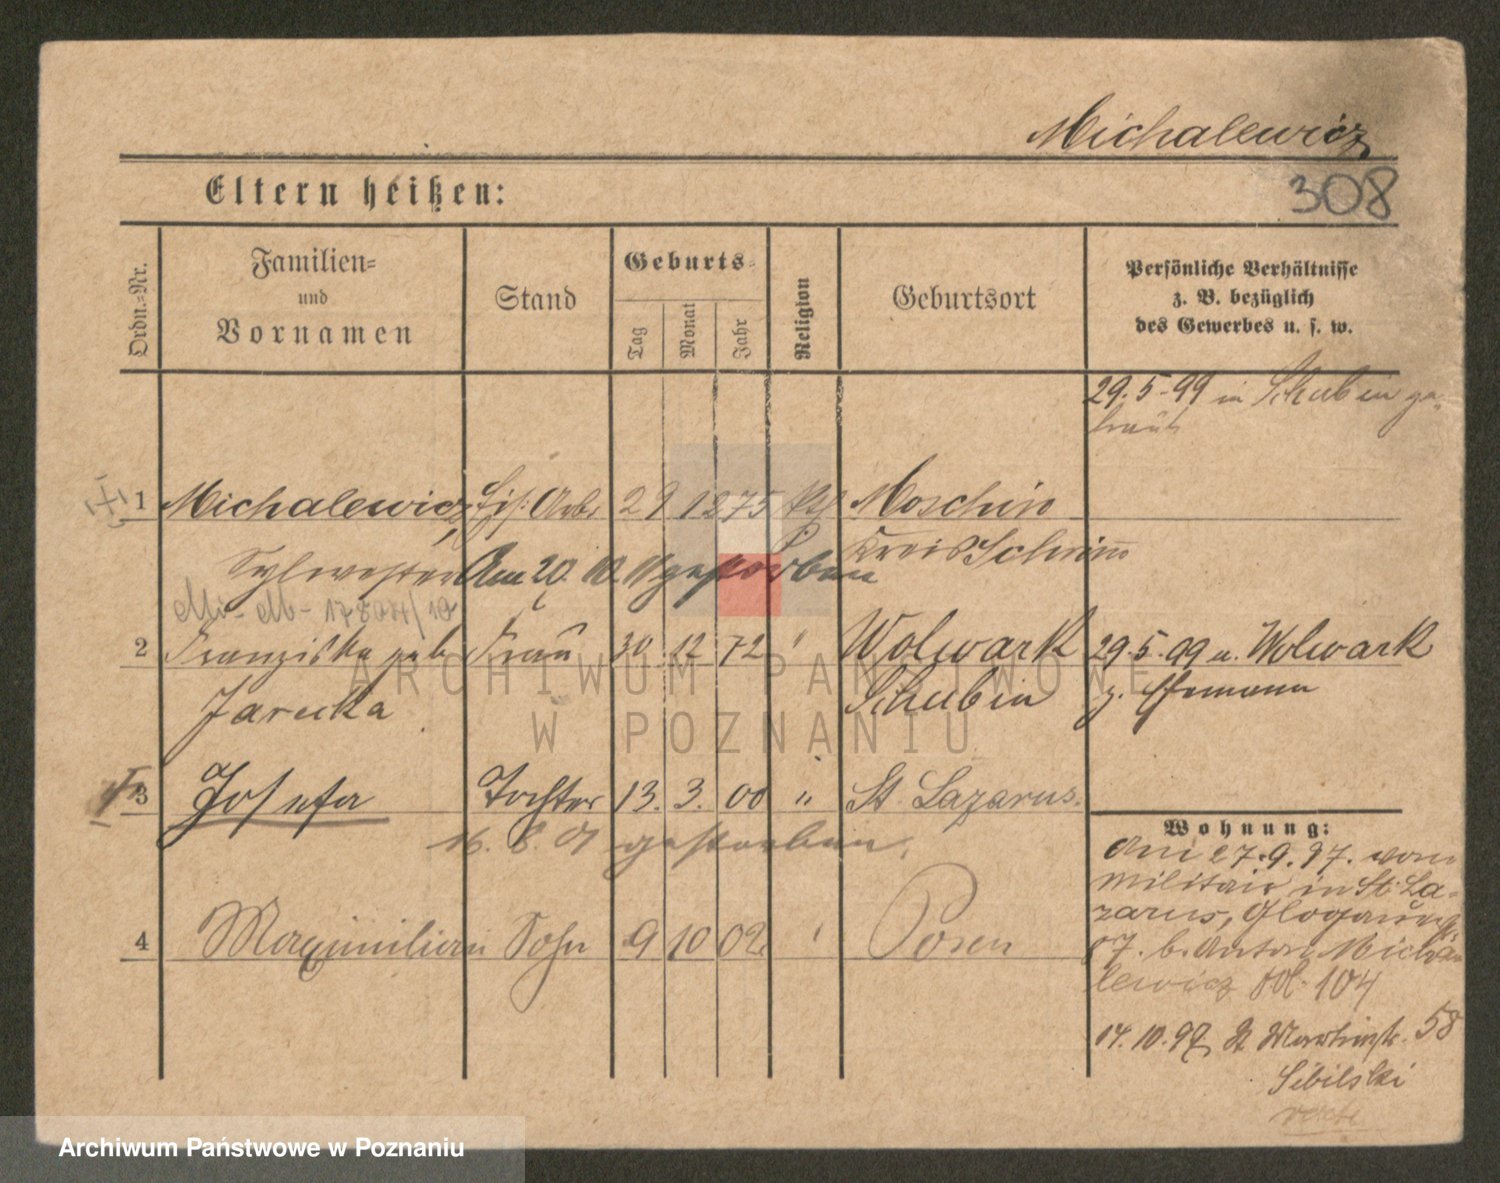 Michalewicz
308
Eltern heißen:
Ordn.=Nr.
Familien=
und
Vornamen
Stand
Geburts=
Tag
Monat
Jahr
Religion
Geburtsort
Persönliche Verhältnisse
z. B. bezüglich
des Gewerbes u. s. w.
29. 5. 99 in Schubin ge=
traut
1 Michalewicz, Arb. 2 9 1875 Moschin
Sylvester Am 20. 10. 11 gestorben Kreis Schrimm
2 Franziska geb. Frau 30 12 72 " Wolwark 29. 5. 99 u. Wolwark
Jarecka Schubin z. Ehemann
3 Josefa Tochter 13. 3. 00 " St. Lazarus.
16. 8. 01 gestorben.
4 Maximilian Sohn 9 10 02 " Posen
Wohnung:
Am 27. 9. 97. vom
Militair in St. La=
zarus, Glogauerstr.
87. b. Anton Micha=
lewicz 104
14. 10. 97 St Martinstr. 58
Sibilski
ARCHIWUM PAŃSTWOWE
W POZNANIU
Archiwum Państwowe w Poznaniu